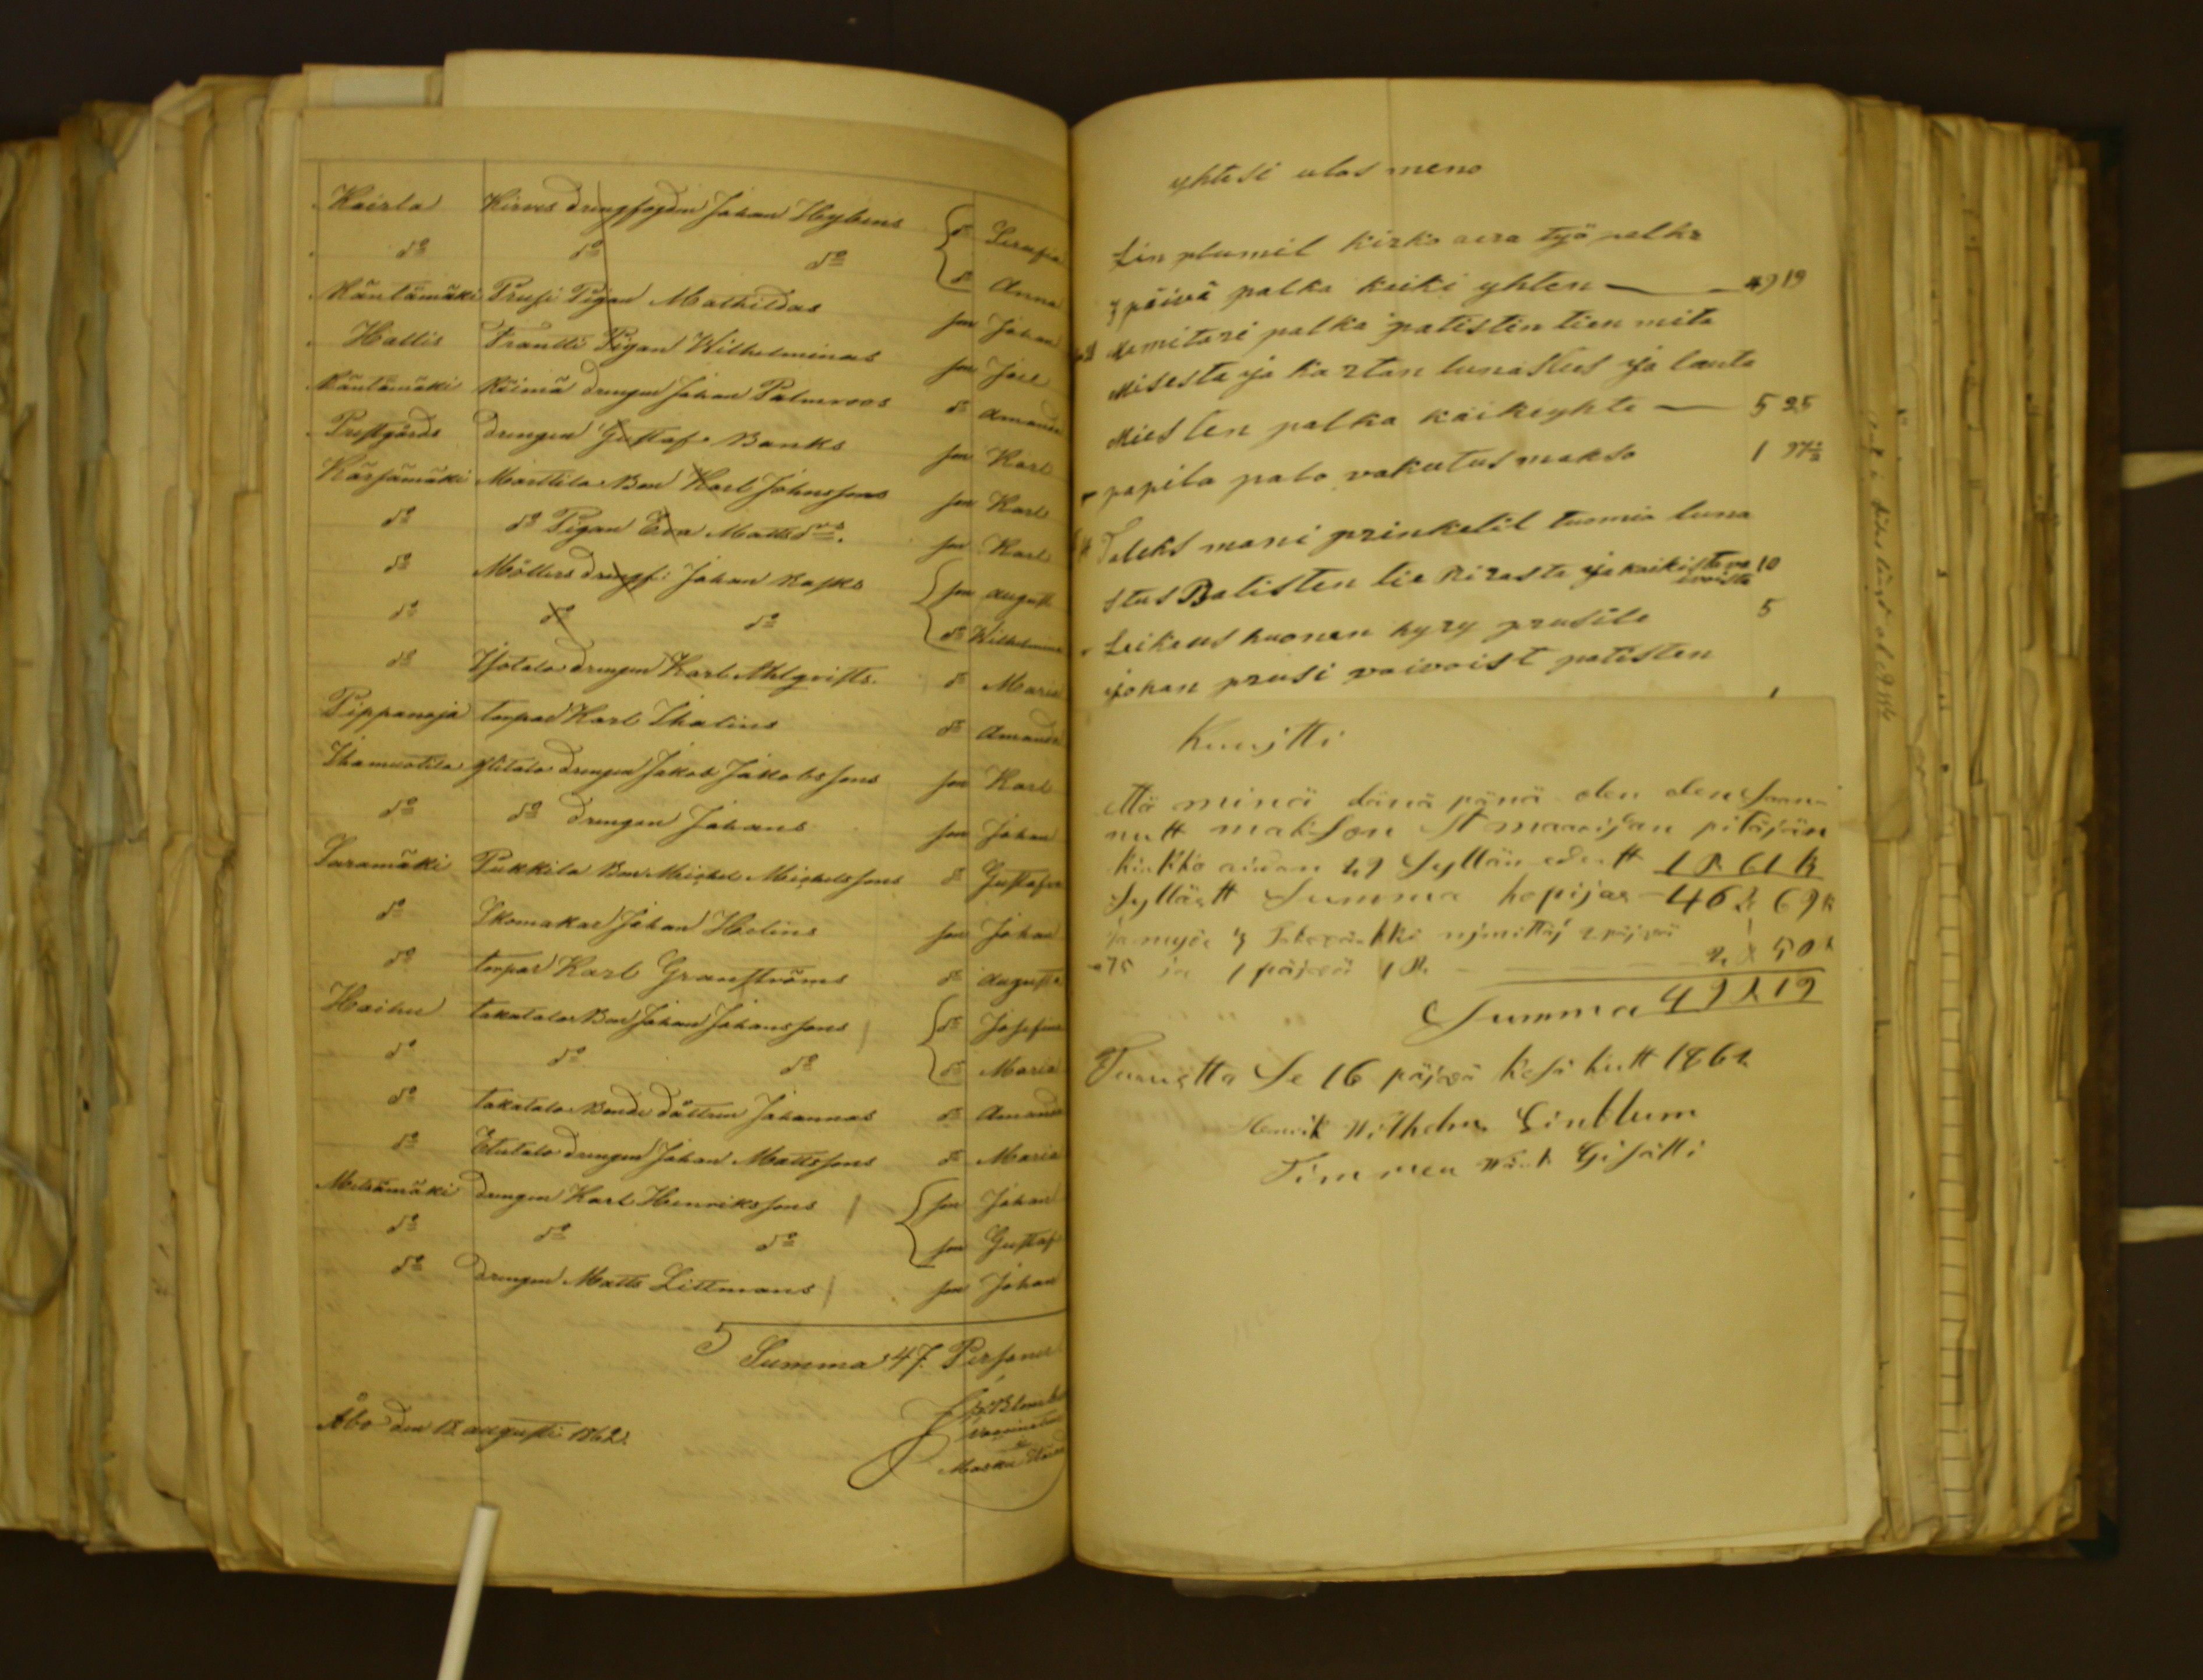 Kairla Kirves drengfogden Johan Nybens dr Serafia
do do do dr Anna
Räntämäki Prusi Pigan Mathildas son Johan
Hallis Frantti Pigan Wilhelminas son Joel
Räntämäki Räimä drengen Johan Palmroos dr Amanda
Prestgårds drengen Gustaf Banks son Karl
Kärsämäki Marttila Bon Karl Johnssons son Karl
do do Pigan Eva Matts dr son Karl
do Möllers drengf: Johan Rasks son August
do do do dr Wilhelmina
do Isotalo drengen Karl Ahlqvists dr Maria
Pippanoja torpar Karl Thalins dr Amanda
Ihamuotila Ylitalo drengen Jakob Jakobssons son Karl
do do drengen Johans son Johan
Saramäki Pukkila Bon Michel Michelssons dr Gustafva
do Skomakar Johan Helins son Johan
do torpar Karl Granströms dr Augusta
Haihu takatalo Bon Johan Johanssons dr Josefina
do do do dr Maria
do takatalo Bonde dottren Johannas dr Amanda
do Etutalo drengen Johan Mattssons dr Maria
Metsämäki drengen Karl Henrikssons son Johan
do do do son Gustaf
do drengen Matts Littmans son Johan
Summa 47 Personer
Åbo den 18 augusti 1862.
yhtesi ulos meno
Lin plumil kirko aera työ palka
3 päivä palka kaiki yhten — 49 19
Mamitari palka patistin tien mita
Misesta ja kartan lunastus ja lauta
Miesten palka kaikiyhte — 5 25
papila palo vakutus makso 1 97½
Taleks mani prinkelil tuomia luna
stus Batisten tie Rirasta ja kaikista va ivoista 10
Leikaus huonen hyry prusile 5
johan prusi vaivoist patisten 1
Kuujtti
että minä tänä pänä olen olen saanu
nutt makson St maarijan pitäjän
kirkko aidan 29 Syllän edestt 1 R 61 k
Syllästt Summa hopijas — 46 R 69 k
ja myös 2 päjvä 2 R 50 k
a 75 ja 1 päjvä 1 R.
Summa 49 R 19
Turustta Se 16 päjvä kesä kutt 1862
Henrik Wilhelm Linblum
Timmer